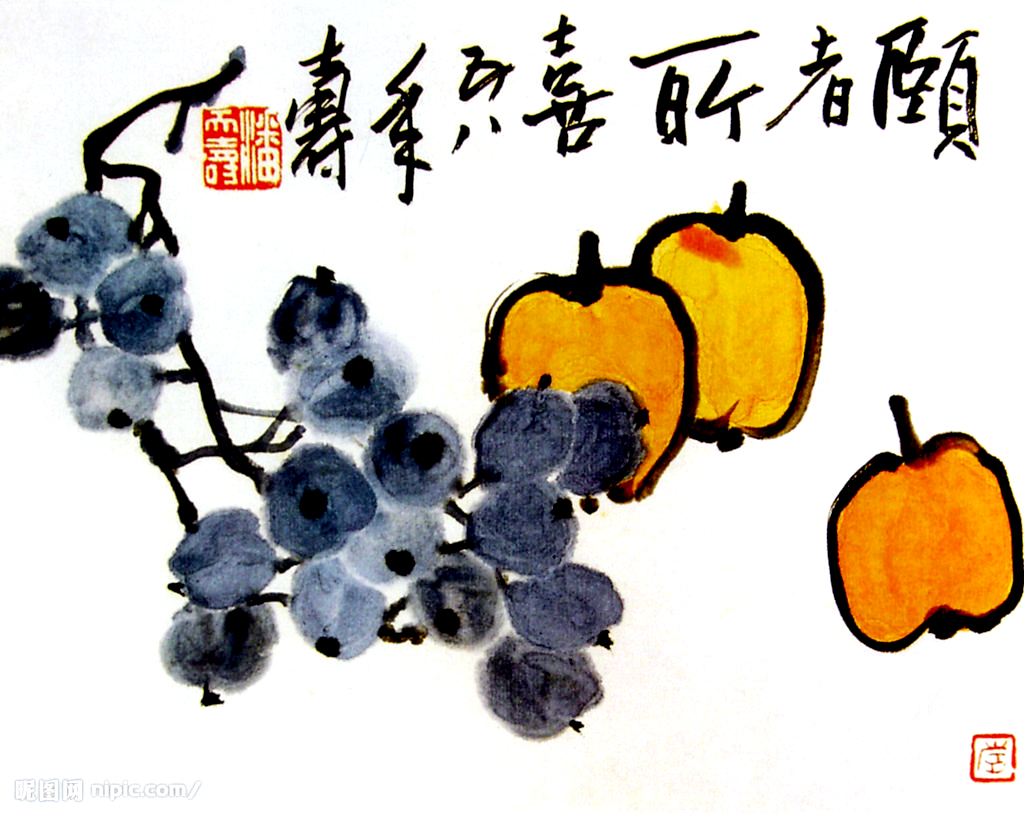 頤者所喜五八年壽
潘天壽
昵图网 nipic.com/